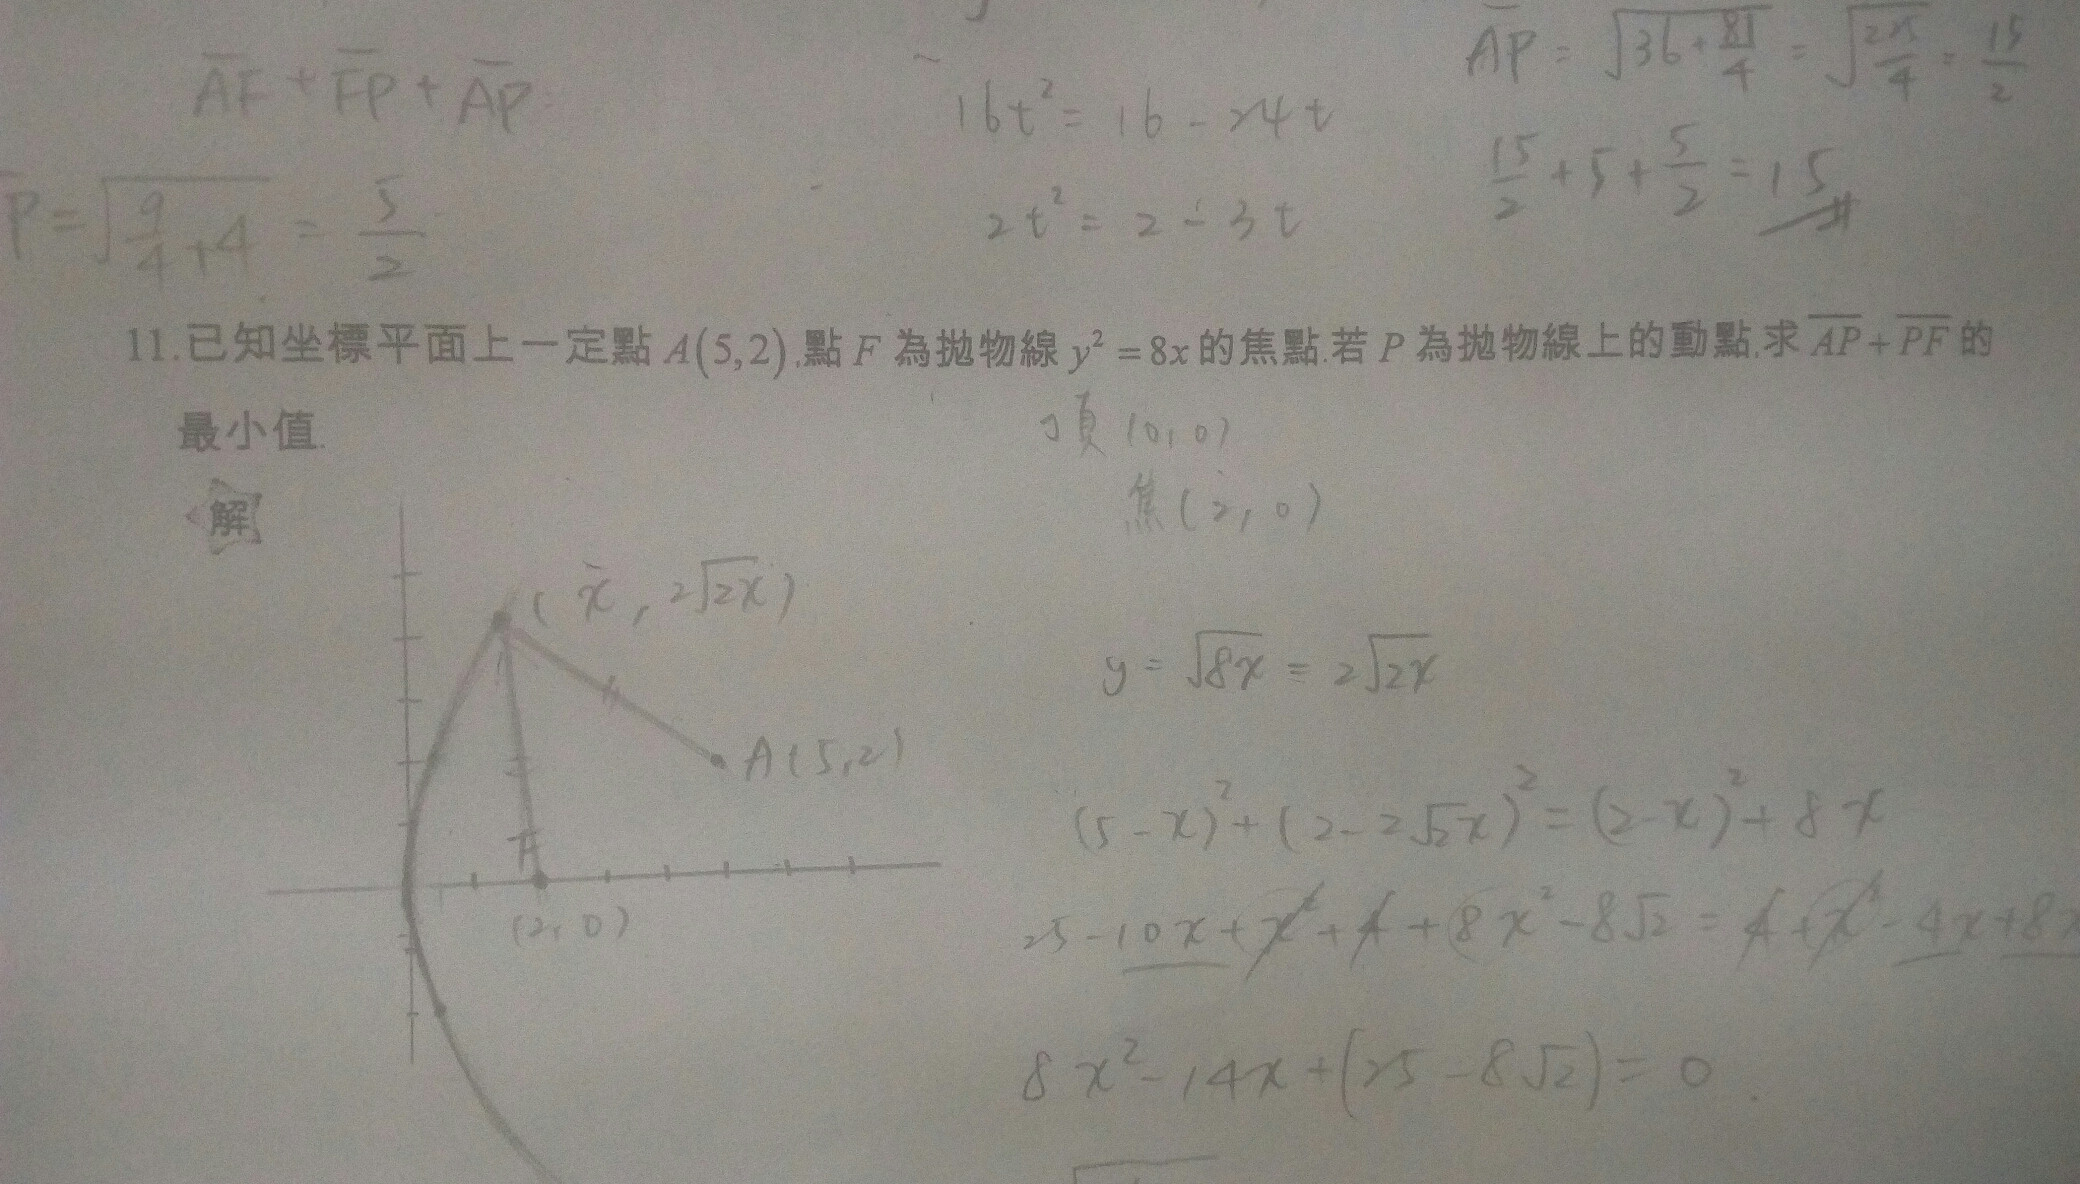 AF + FP + AP
P = √(9/4 + 4) = 5/2
16t² = 16 - 24t
2t² = 2 - 3t
AP = √(36 + 81/4) = √(225/4) = 15/2
15/2 + 5 + 5/2 = 15
11.已知坐標平面上一定點 A(5,2),點 F 為拋物線 y² = 8x 的焦點.若 P 為拋物線上的動點,求 AP + PF 的
最小值.
解
頂 (0,0)
焦 (2,0)
(x, 2√2x)
A(5,2)
F
(2,0)
y = √8x = 2√2x
(5-x)² + (2-2√2x)² = (2-x)² + 8x
25-10x+x²+4+8x²-8√2 = 4+x²-4x+8x
8x²-14x+(25-8√2) = 0